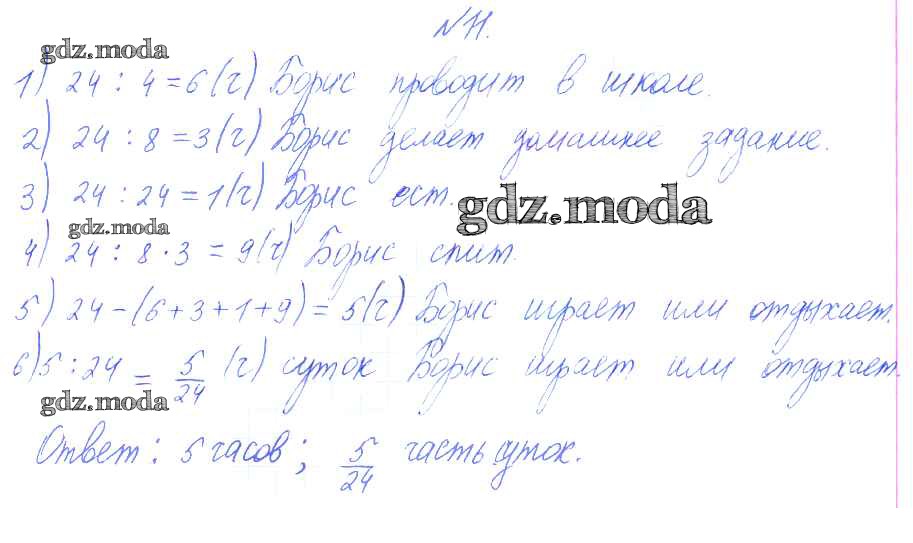 № 11.
gdz.moda
1) 24 : 4 = 6 (ч) Борис проводит в школе.
2) 24 : 8 = 3 (ч) Борис делает домашнее задание.
3) 24 : 24 = 1 (ч) Борис ест.
gdz.moda
gdz.moda
4) 24 : 8 · 3 = 9 (ч) Борис спит.
5) 24 – (6 + 3 + 1 + 9) = 5 (ч) Борис играет или отдыхает.
6) 5 : 24 = 5/24 (ч) суток Борис играет или отдыхает.
gdz.moda
Ответ: 5 часов; 5/24 часть суток.